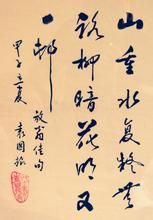 山重水复疑无
路柳暗花明又
一邨
放翁佳句
甲子之夏
袁国